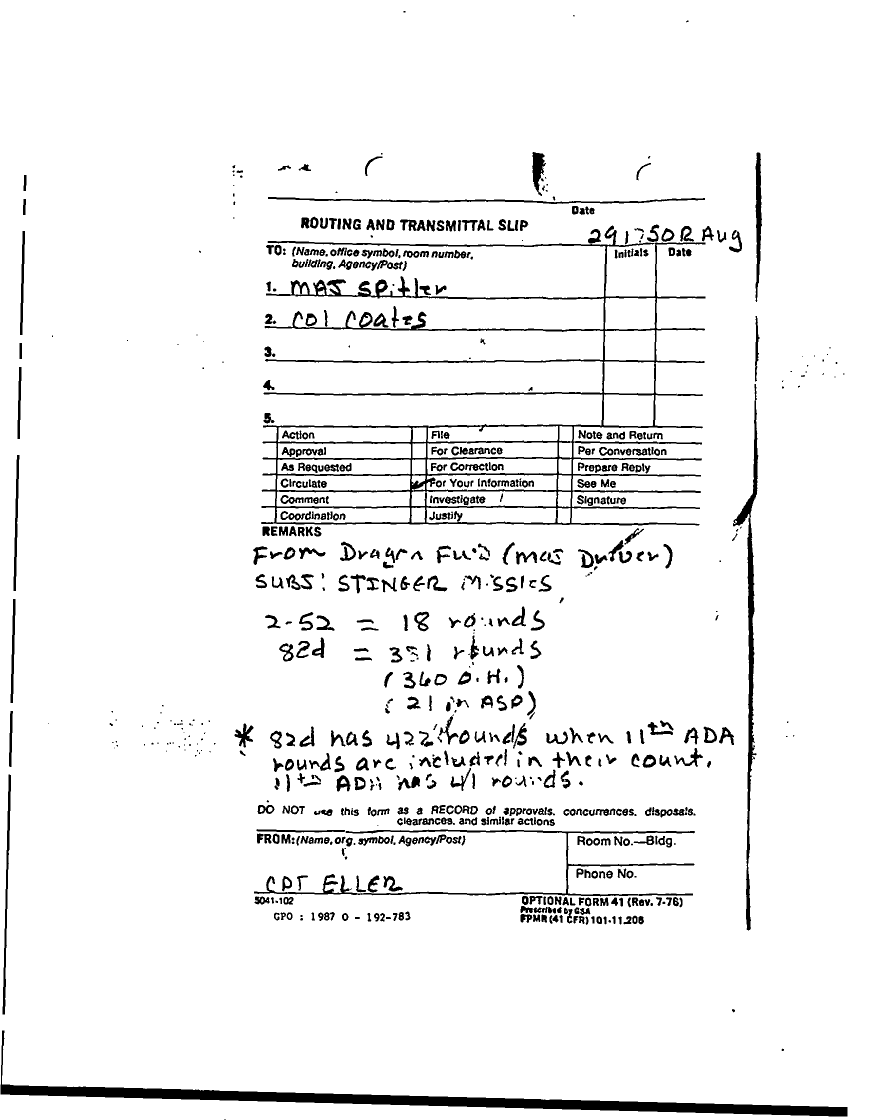 Date
ROUTING AND TRANSMITTAL SLIP
291750R Aug
TO: (Name, office symbol, room number,
building, Agency/Post)
Initials Date
1. MAJ SPitler
2. COl COates
3.
4.
5.
Action File Note and Return
Approval For Clearance Per Conversation
As Requested For Correction Prepare Reply
Circulate For Your Information See Me
Comment Investigate Signature
Coordination Justify
REMARKS
From Dragon FWD (MAJ Driver)
SUBJ: STINGER MISSlES
2-52 = 18 rounds
82d = 381 rounds
(360 O.H.)
(21 in ASP)
* 82d has 422 rounds when 11th ADA
rounds are included in their count.
11th ADA has 41 rounds.
DO NOT use this form as a RECORD of approvals, concurrences, disposals,
clearances, and similar actions
FROM: (Name, org. symbol, Agency/Post) Room No.—Bldg.
Phone No.
CPT ELLER
5041-102 OPTIONAL FORM 41 (Rev. 7-76)
Prescribed by GSA
GPO : 1987 O - 192-783 FPMR (41 CFR) 101-11.206